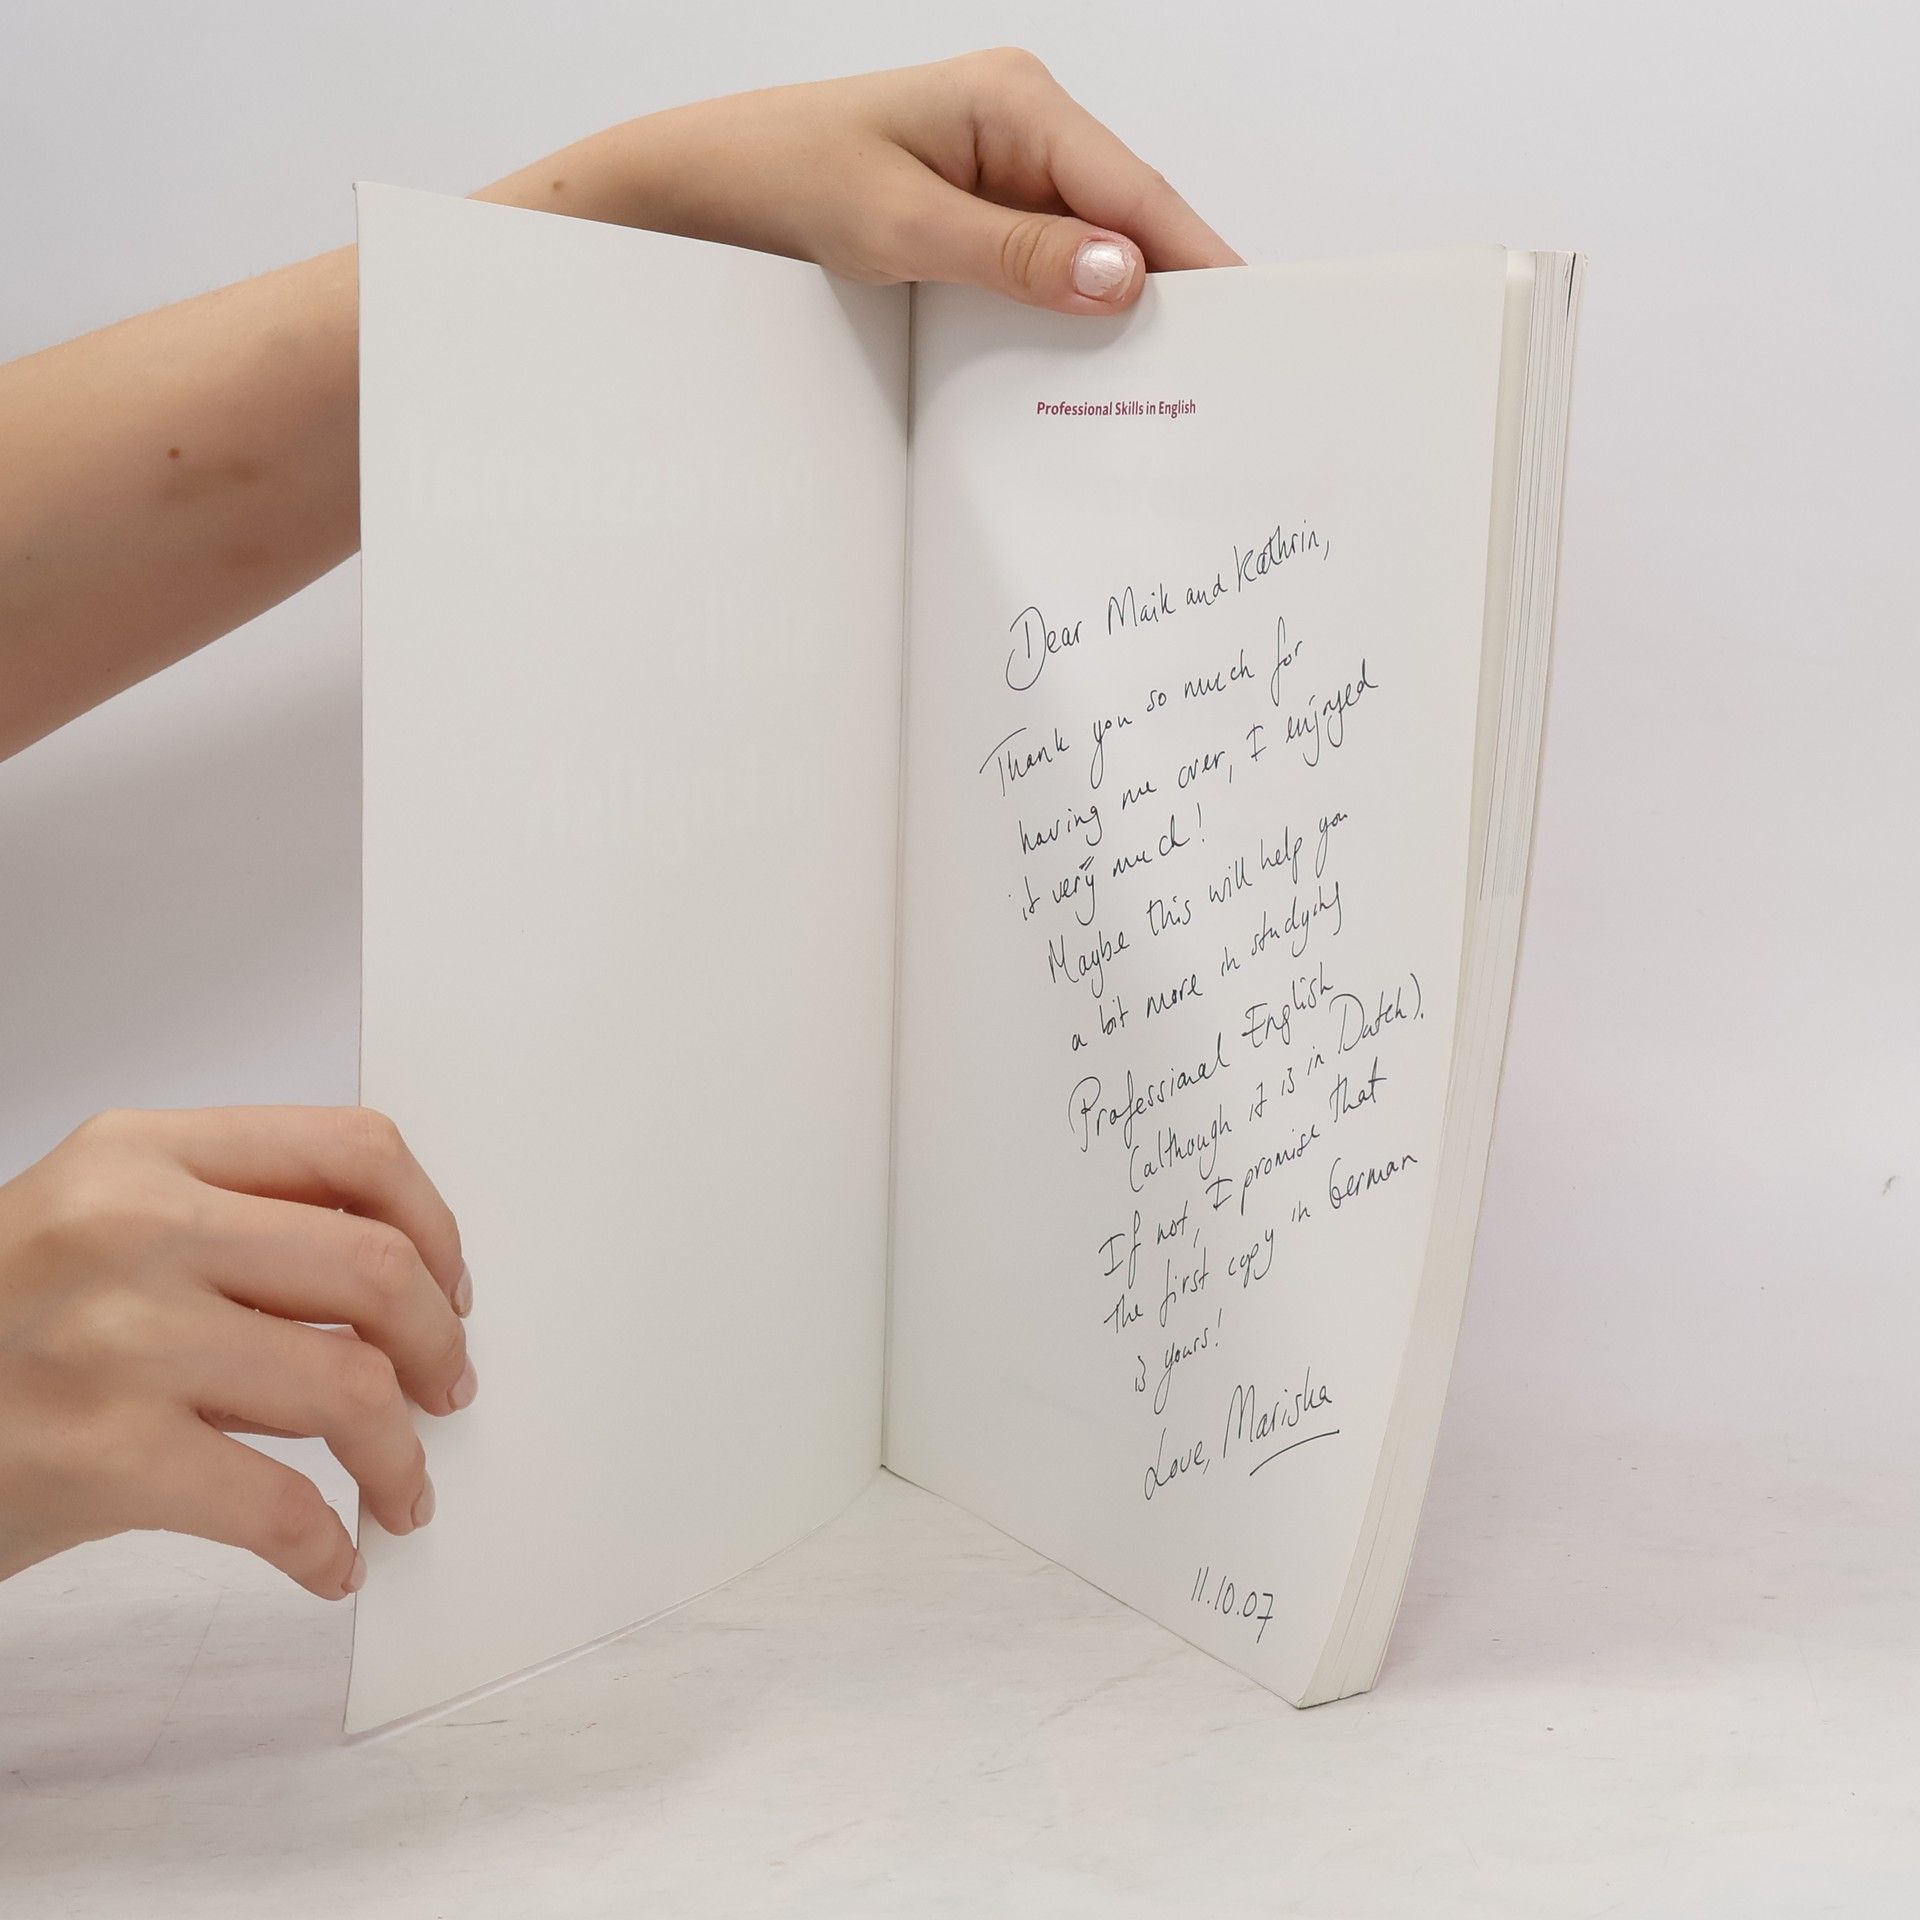 Professional Skills in English
Dear Maik and Kathrin,
Thank you so much for
having me over, I enjoyed
it very much!
Maybe this will help you
a bit more in studying
Professional English
(although it is in Dutch).
If not, I promise that
the first copy in German
is yours!
Love, Mariska
11.10.07